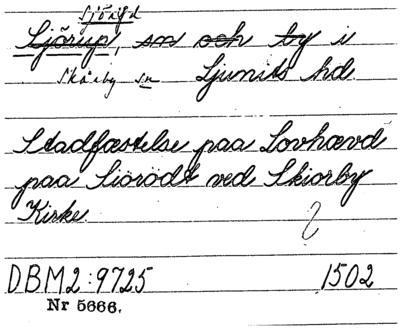 Sjöröd
Sjörup, sn och by i
Skårby sn Ljunits hd.
Stadfæstelse paa Lovhævd
paa Siörödt ved Skiorby
Kirke.
DBM2:9725 1502
Nr 5666.